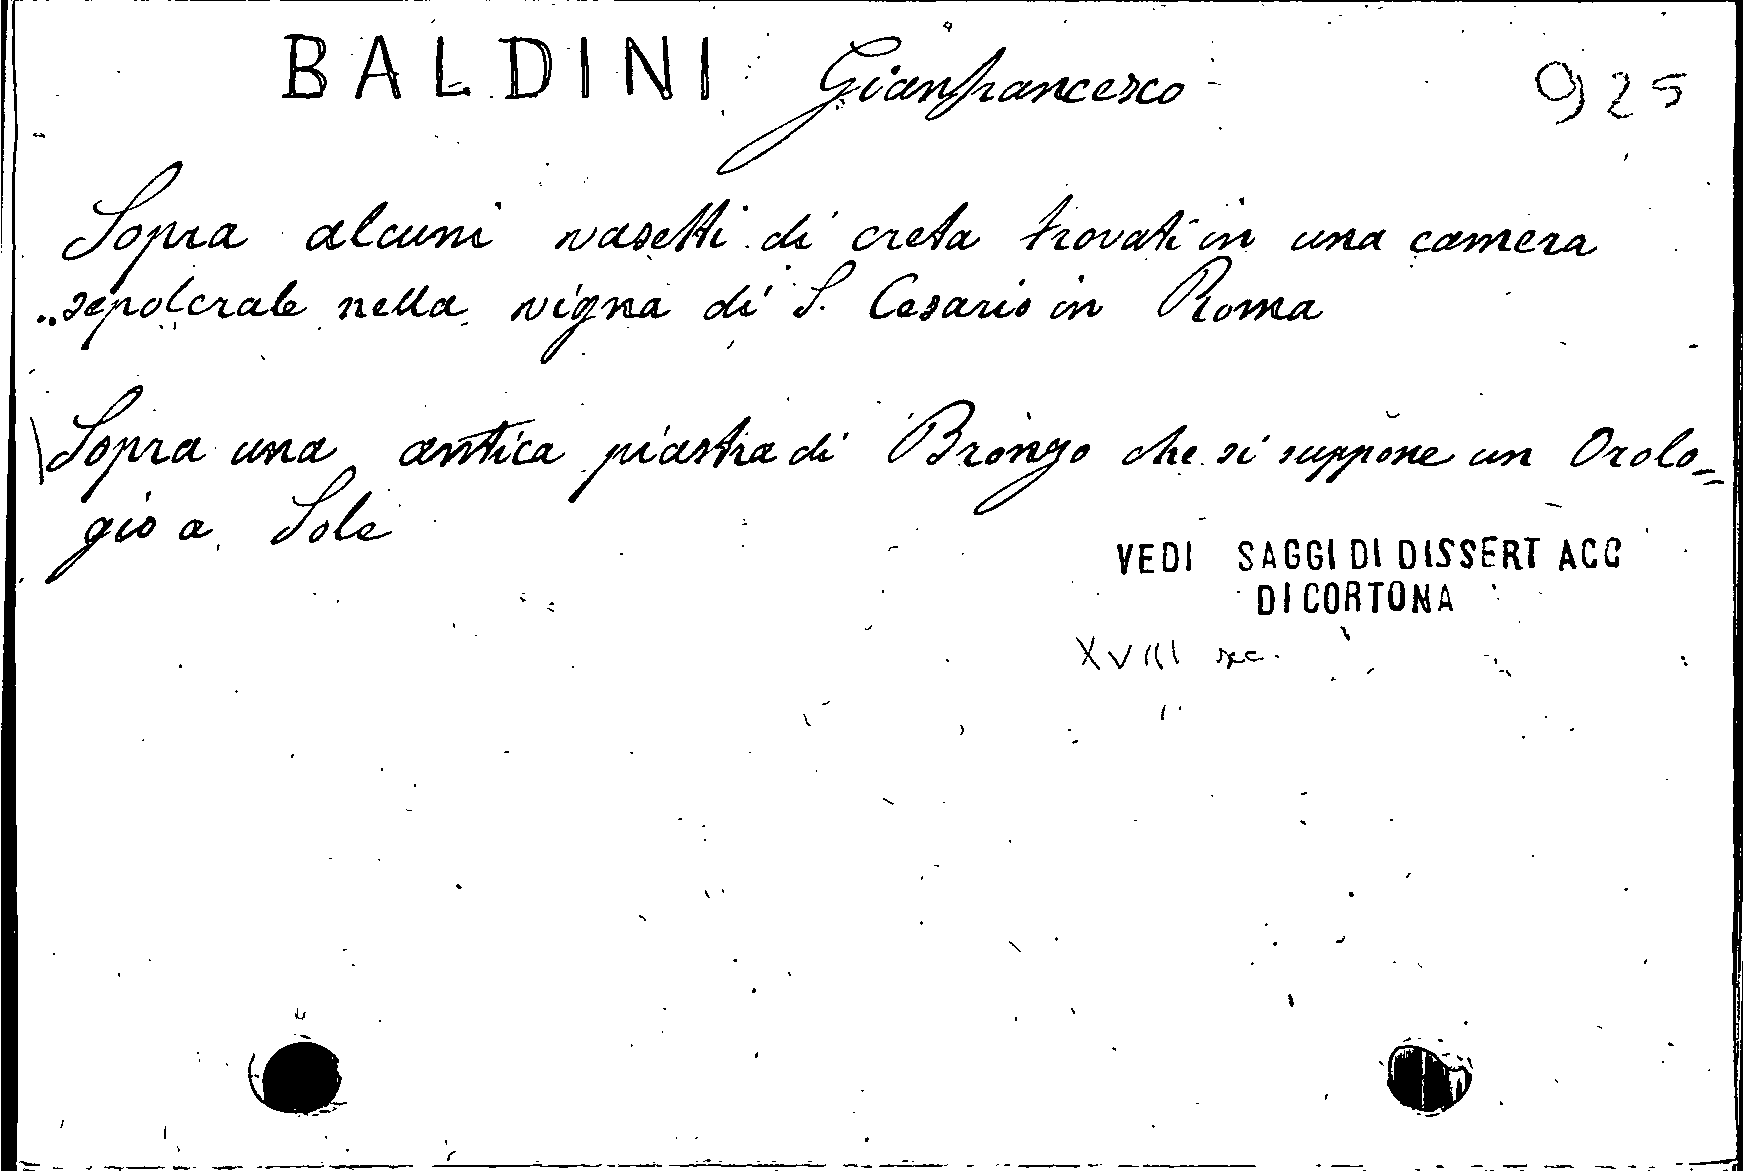 BALDINI Gianfrancesco 925
Sopra alcuni vasetti di creta trovati in una camera
sepolcrale nella vigna di S. Cesario in Roma
Sopra una antica piastra di Bronzo che si suppone un Orolo=
gio a Sole
VEDI SAGGI DI DISSERT ACC
DI CORTONA
XVIII sec.